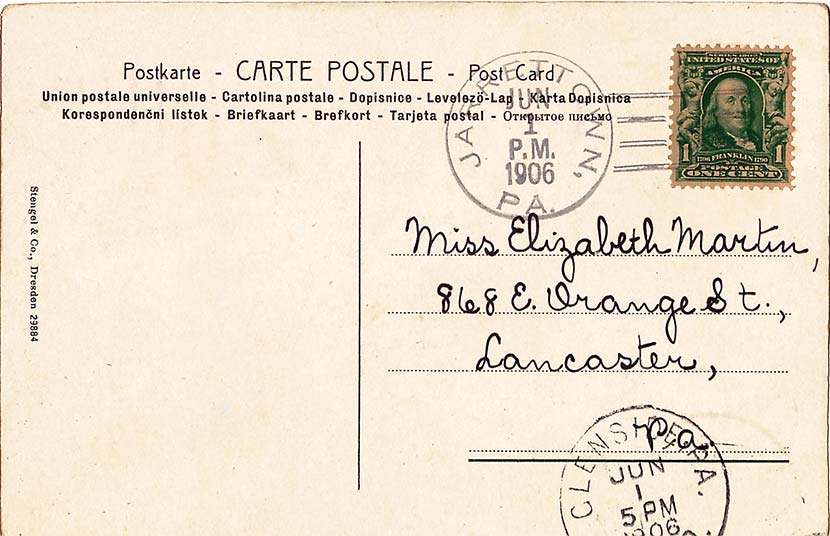 Postkarte - CARTE POSTALE - Post Card
Union postale universelle - Cartolina postale - Dopisnice - Levelező-Lap - Karta Dopisnica
Korespondenční lístek - Briefkaart - Brefkort - Tarjeta postal - Открытое письмо
JARRETTOWN, PA.
JUN
1
P.M.
1906
SERIES 1902
UNITED STATES OF
AMERICA
1706 FRANKLIN 1790
1 POSTAGE 1
ONE CENT
Stengel & Co., Dresden 29884
Miss Elizabeth Martin,
868 E. Orange St.,
Lancaster,
Pa.
PA.
JUN
1
5 PM
1906